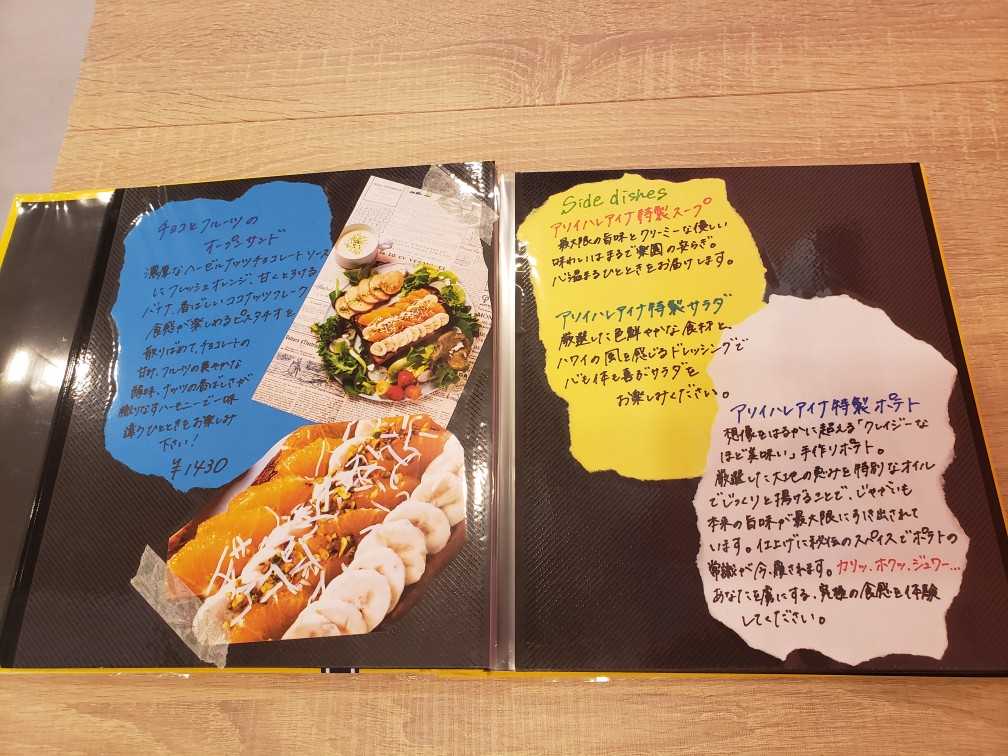 チョコとフルーツの
オープンサンド
濃厚なヘーゼルナッツチョコレートソース
にフレッシュオレンジ、甘くとろける
バナナ、香ばしいココナッツフレーク
食感が楽しめるピスタチオを
散りばめて、チョコレートの
甘み、フルーツの爽やかな
酸味、ナッツの香ばしさが
織りなすハーモニーで一味
違うひとときをお楽しみ
下さい!
¥1430
Side dishes
アリイハレアイナ特製スープ
最大限の旨味とクリーミーな優しい
味わいはまるで楽園の安らぎ。
心温まるひとときをお届けします。
アリイハレアイナ特製サラダ
厳選した色鮮やかな食材と、
ハワイの風を感じるドレッシングで
心も体も喜ぶサラダを
お楽しみください。
アリイハレアイナ特製ポテト
想像をはるかに超える「クレイジーな
ほど美味い」手作りポテト。
厳選した大地の恵みを特別なオイル
でじっくりと揚げることで、じゃがいも
本来の旨味が最大限に引き出されて
います。仕上げに秘伝のスパイスでポテトの
常識が今、覆されます。カリッ、ホクッ、ジュワー…
あなたを虜にする、究極の食感を体験
してください。